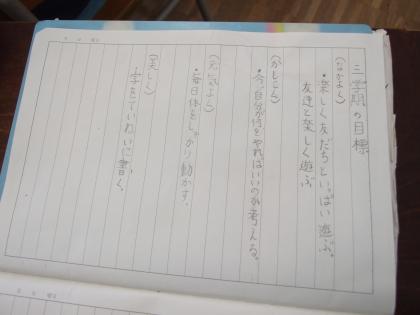 三学期の目標
(なかよく)
・楽しく友だちといっぱい遊ぶ。
友達と楽しく遊ぶ
(かしこく)
・今、自分が何をやればいいのか考える。
(元気よく)
・毎日体をしっかり動かす。
(美しく)
・字をていねいに書く。